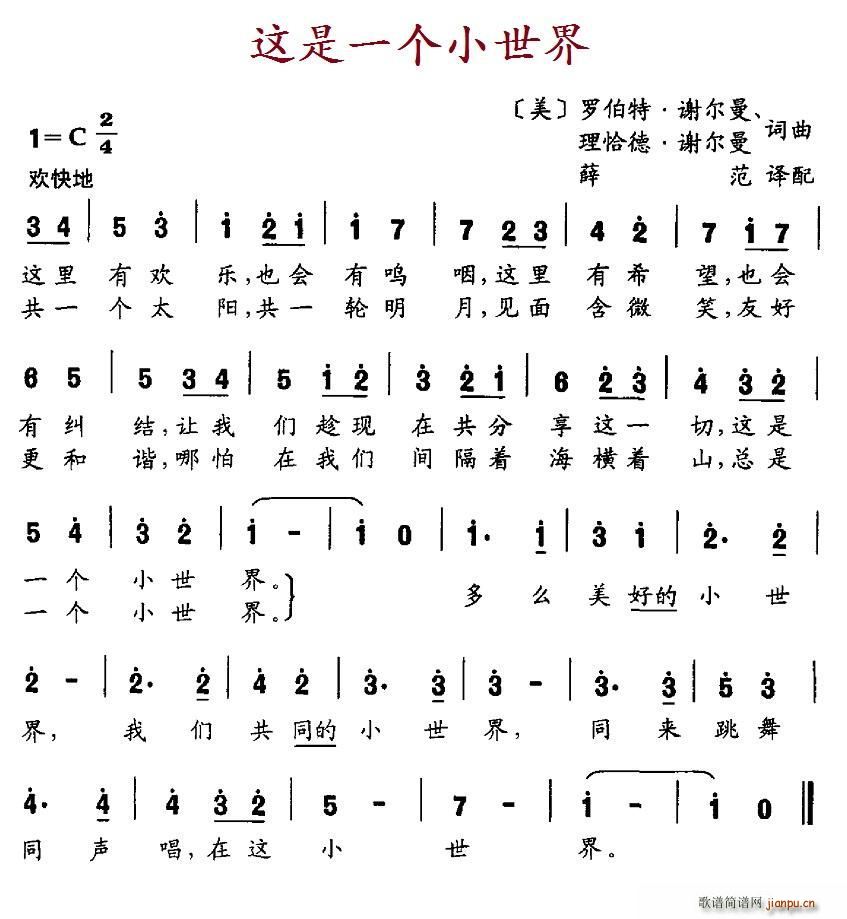 这是一个小世界
〔美〕罗伯特·谢尔曼、
1=C 2/4 理恰德·谢尔曼 词曲
欢快地 薛 范 译配
3 4 | 5 3 | 1 2 1 | 1 7 | 7 2 3 | 4 2 | 7 1 7 |
这里 有欢 乐,也会 有呜 咽,这里 有希 望,也会
共一 个太 阳,共一 轮明 月,见面 含微 笑,友好
6 5 | 5 3 4 | 5 1 2 | 3 2 1 | 6 2 3 | 4 3 2 |
有纠 结,让我 们趁现 在共分 享这一 切,这是
更和 谐,哪怕 在我们 间隔着 海横着 山,总是
5 4 | 3 2 | 1 - | 1 0 | 1· 1 | 3 1 | 2· 2 |
一个 小世 界。 多么 美好的 小世
一个 小世 界。
2 - | 2· 2 | 4 2 | 3· 3 | 3 - | 3· 3 | 5 3 |
界, 我们 共同的 小世 界, 同来 跳舞
4· 4 | 4 3 2 | 5 - | 7 - | 1 - | 1 0 ‖
同声 唱,在这 小 世 界。
歌谱简谱网 jianpu.cn